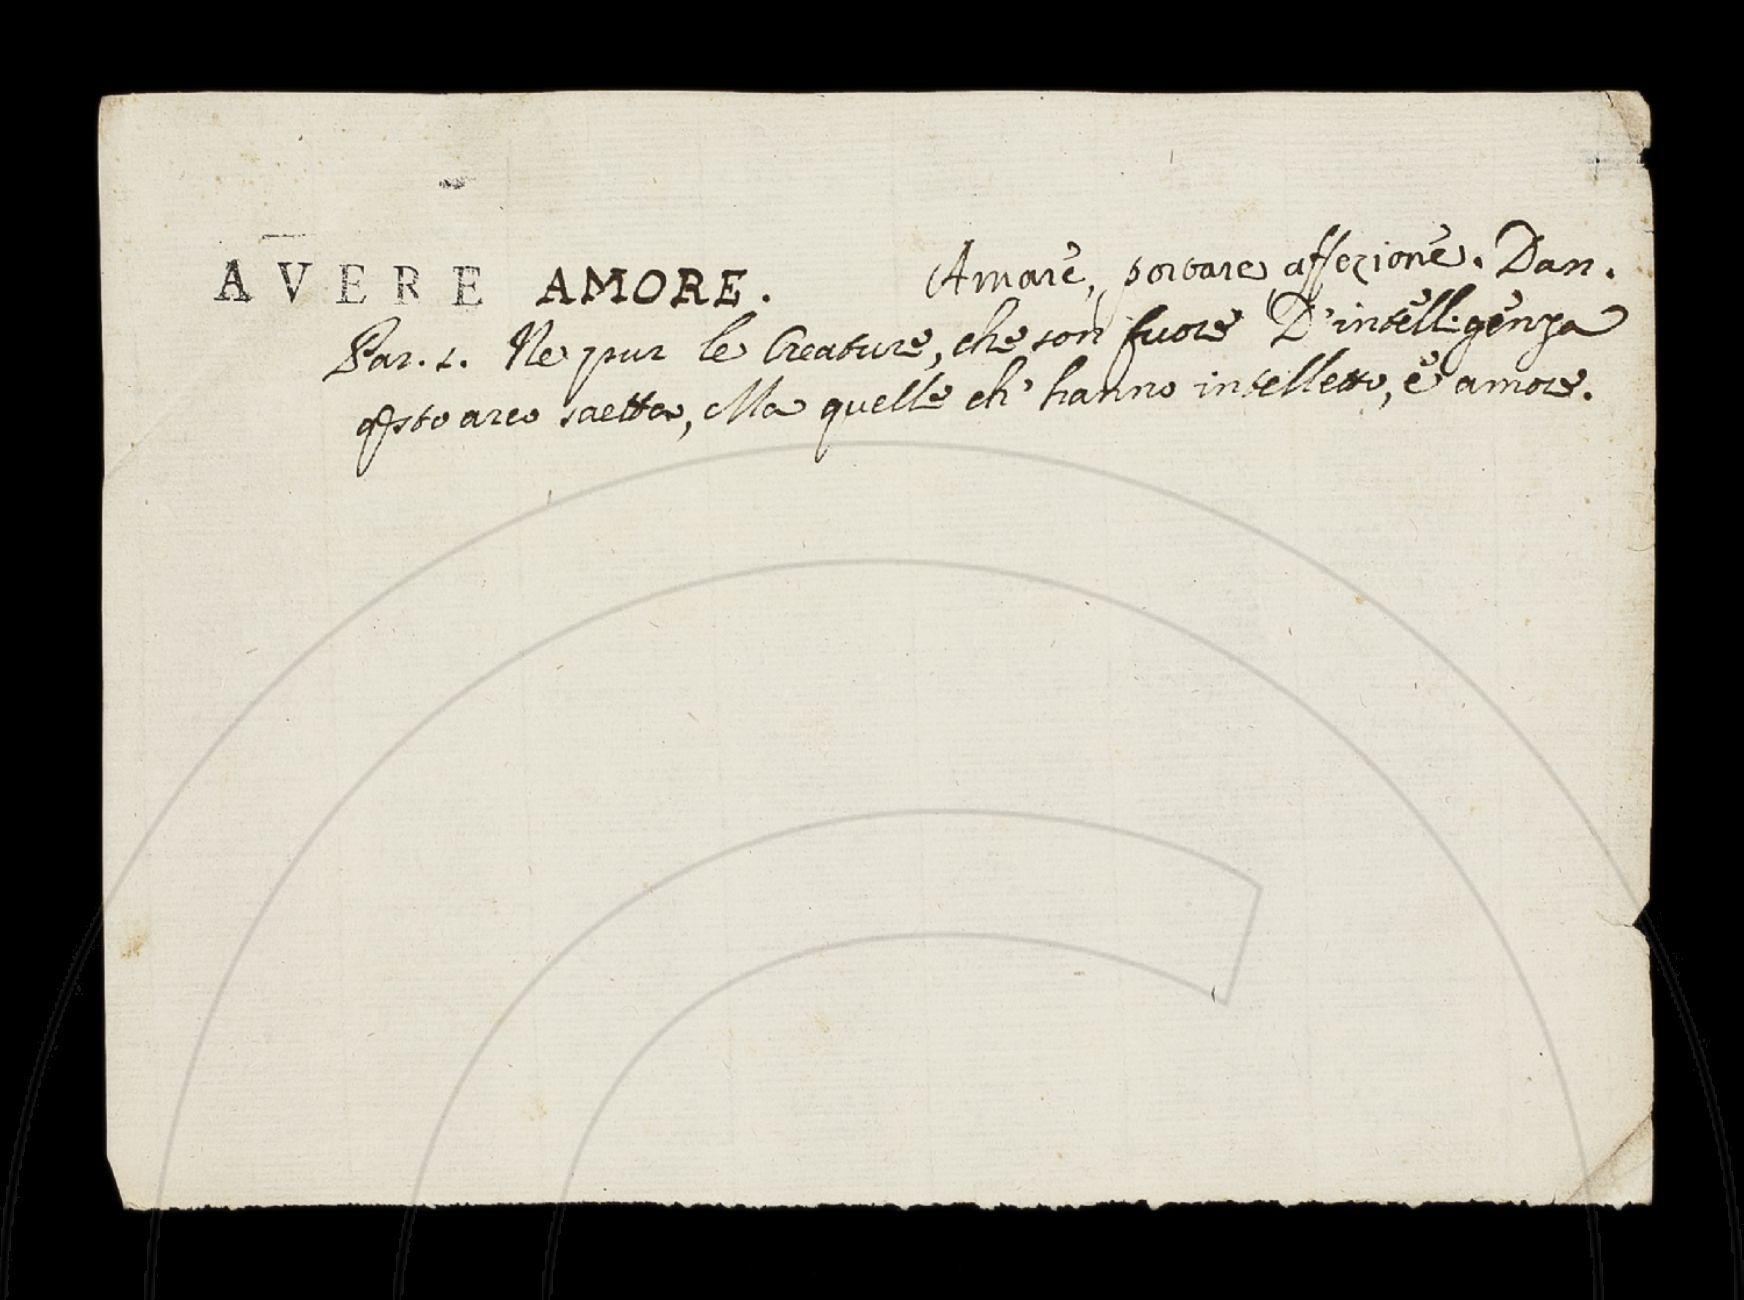 AVERE AMORE. Amare, portare affezione. Dan.
Par. 1. Ne pur le Creature, che son fuore D'intelligenza
qsto arco saetta, Ma quelle ch' hanno intelletto, e amore.